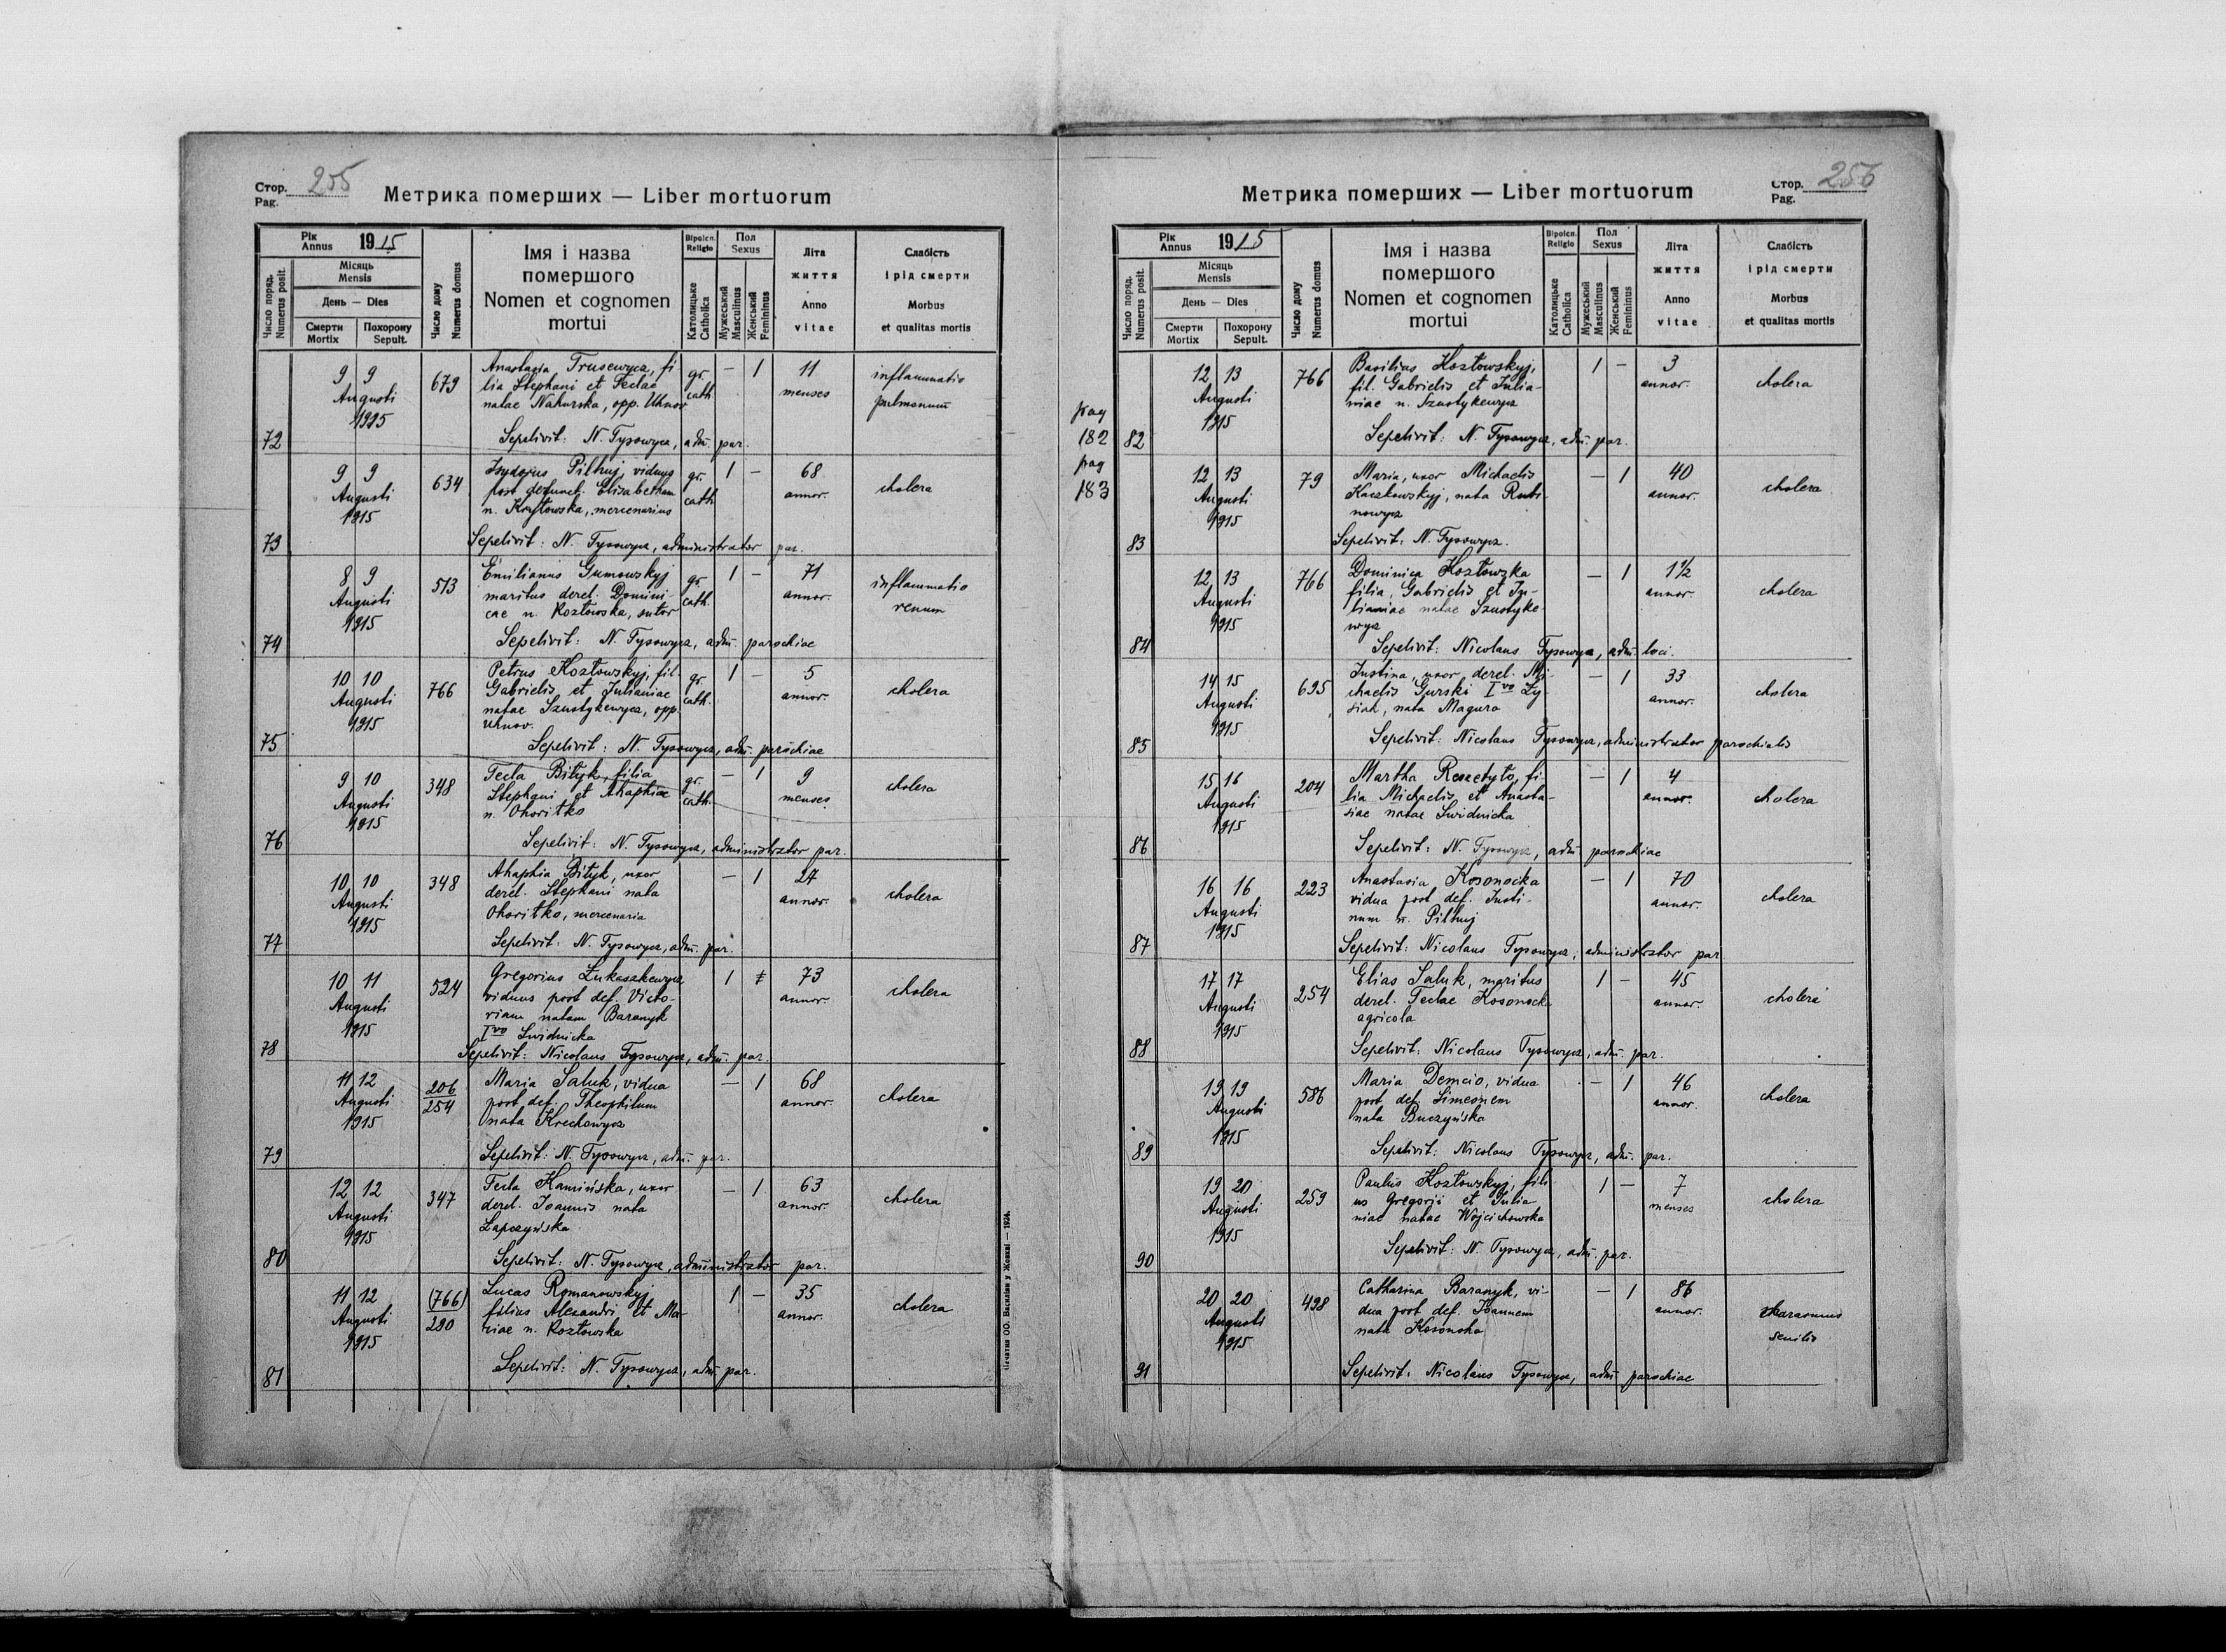 Стор. 255
Pag.
Метрика померших — Liber mortuorum
Рік
Annus 1915
Місяць
Mensis
День — Dies
Число поряд.
Numerus posit.
Смерти
Mortix
Похорону
Sepult.
Число дому
Numerus domus
Імя і назва
помершого
Nomen et cognomen
mortui
Віроісп.
Religio
Католицьке
Catholica
Пол
Sexus
Мужеський
Masculinus
Женський
Femininus
Літа
життя
Anno
vitae
Слабість
і рід смерти
Morbus
et qualitas mortis
72 9 9 Augusti 1915 679 gr. cath. — 1 11 menses inflammatio pulmonum
Anastasia Trusewycz, fi
lia Stephani et Teclae
natae Nahurska, opp. Uhnov
Sepelivit: N. Tysowycz, adm. par.
73 9 9 Augusti 1915 634 gr. cath 1 — 68 annor. cholera
Isydorus Pilhuj, viduus
post defunct. Elisabetham
n. Krytowska, mercenarius
Sepelivit: N. Tysowycz, administrator par.
74 8 9 Augusti 1915 513 gr. cath. 1 — 71 annor. inflammatio renum
Emilianus Gumowskyj
maritus derel. Domini-
cae n. Kozłowska, sutor
Sepelivit: N. Tysowycz, adm. parochiae
75 10 10 Augusti 1915 766 gr. cath. 1 — 5 annor. cholera
Petrus Kozłowskyj, fil.
Gabrielis et Julianiae
natae Szustykewycz, opp.
Uhnov.
Sepelivit: N. Tysowycz, adm. parochiae
76 9 10 Augusti 1915 348 gr. cath. — 1 9 menses cholera
Tecla Bityk, filia
Stephani et Ahaphiae
n. Ohoritko
Sepelivit: N. Tysowycz, administrator par.
77 10 10 Augusti 1915 348 — 1 27 annor. cholera
Ahaphia Bityk, uxor
derel. Stephani nata
Ohoritko, mercenaria
Sepelivit: N. Tysowycz, adm. par.
78 10 11 Augusti 1915 524 1 73 annor. cholera
Gregorius Łukaszkewycz
viduus post def. Victo-
riam natam Baranyk
Ivo Swidnicka
Sepelivit: Nicolaus Tysowycz, adm. par.
79 11 12 Augusti 1915 206 254 — 1 68 annor. cholera
Maria Saluk, vidua
post def. Theophilum
nata Krechowycz
Sepelivit: N. Tysowycz, adm. par.
80 12 12 Augusti 1915 347 — 1 63 annor. cholera
Tecla Kamińska, uxor
derel. Joannis nata
Łapczyńska
Sepelivit: N. Tysowycz, administrator par.
81 11 12 Augusti 1915 (766) 280 1 — 35 annor. cholera
Lucas Romanowskyj
filius Alexandri et Ma-
riae n. Kozłowska
Sepelivit: N. Tysowycz, adm. par.
Печатня ОО. Василіян у Жовкві — 1924.
Метрика померших — Liber mortuorum
Стор. 256
Pag.
Рік
Annus 1915
Місяць
Mensis
День — Dies
Число поряд.
Numerus posit.
Смерти
Mortix
Похорону
Sepult.
Число дому
Numerus domus
Імя і назва
помершого
Nomen et cognomen
mortui
Віроісп.
Religio
Католицьке
Catholica
Пол
Sexus
Мужеський
Masculinus
Женський
Femininus
Літа
життя
Anno
vitae
Слабість
і рід смерти
Morbus
et qualitas mortis
pag
182
pag
183
82 12 13 Augusti 1915 766 1 — 3 annor. cholera
Basilius Kozłowskyj,
fil. Gabrielis et Julia-
niae n. Szustykewycz
Sepelivit: N. Tysowycz, adm. par.
83 12 13 Augusti 1915 79 — 1 40 annor. cholera
Maria, uxor Michaelis
Kaczkowskyj, nata Rubi-
nowycz
Sepelivit: N. Tysowycz.
84 12 13 Augusti 1915 766 — 1 1½ annor. cholera
Dominica Kozłowska
filia, Gabrielis et Ju-
lianiae natae Szustyke-
wycz
Sepelivit: Nicolaus Tysowycz, adm. loci.
85 14 15 Augusti 1915 695 — 1 33 annor. cholera
Justina, uxor derel. Mi-
chaelis Gurski Ivo Ły-
siak, nata Magura
Sepelivit: Nicolaus Tysowycz, administrator parochialis
86 15 16 Augusti 1915 204 — 1 4 annor. cholera
Martha Reszetyło, fi-
lia Michaelis et Anasta-
siae natae Swidnicka
Sepelivit: N. Tysowycz, adm parochiae
87 16 16 Augusti 1915 223 — 1 70 annor. cholera
Anastasia Kosonocka
vidua post def. Justi-
num n. Pilhuj
Sepelivit: Nicolaus Tysowycz, administrator par
88 17 17 Augusti 1915 254 1 — 45 annor. cholera
Elias Saluk, maritus
derel. Teclae Kosonocka
agricola
Sepelivit: Nicolaus Tysowycz, adm. par.
89 19 19 Augusti 1915 586 — 1 46 annor. cholera
Maria Demcio, vidua
post def. Simeonem
nata Buczyńska
Sepelivit: Nicolaus Tysowycz, adm. par.
90 19 20 Augusti 1915 259 1 — 7 menses cholera
Paulus Kozłowskyj, fili-
us Gregorii et Julia-
niae natae Wojcichowska
Sepelivit: N. Tysowycz, adm. par.
91 20 20 Augusti 1915 498 — 1 86 annor. marasmus senilis
Catharina Baranyk, vi-
dua post def. Joannem
nata Kosonoha
Sepelivit: Nicolaus Tysowycz, adm parochiae